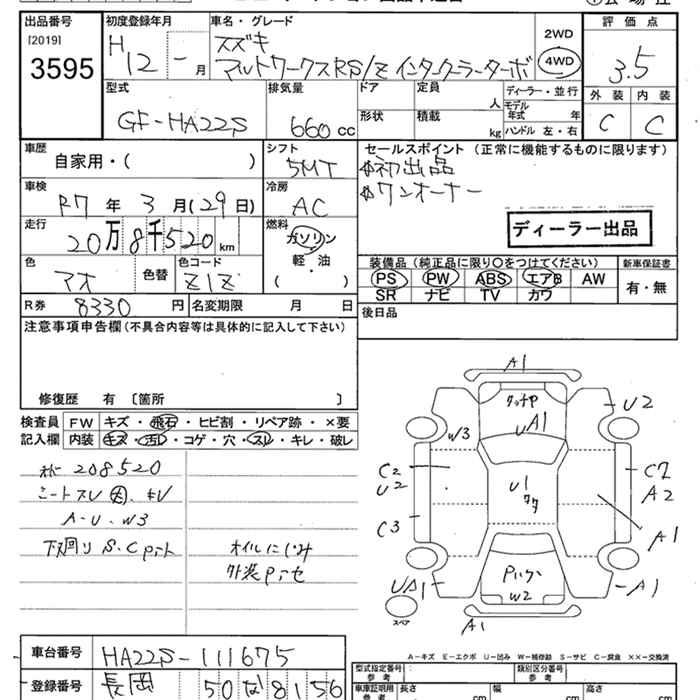 出品番号
[2019]
3595
初度登録年月
H 12 - 月
車名・グレード
スズキ
2WD
4WD
評価点
3.5
外装 内装
C C
型式
GF-HA22S
排気量
660 cc
ドア
形状
定員 人
積載 kg
ディーラー・並行
モデル年式 年
ハンドル 左・右
車歴
自家用・( )
シフト
5MT
セールスポイント (正常に機能するものに限ります)
初出品
ワンオーナー
ディーラー出品
車検
R7 年 3 月 (29日)
冷房
AC
走行
20万8千520km
燃料
ガソリン
・
軽・油
( )
色
アオ
色替
色コード
Z1Z
装備品 (純正品に限り〇をつけてください)
PS PW ABS エアB AW
SR ナビ TV カワ
新車保証書
有・無
R券
8330 円
名変期限 月 日
後日品
注意事項申告欄(不具合内容等は具体的に記入して下さい)
修復歴 有 〔箇所 〕
検査員記入欄
FW キズ・飛石・ヒビ割・リペア跡・×要
内装 キズ・汚レ・コゲ・穴・スレ・キレ・破レ
208520
A-U. W3
下回り S.C
オイルにじみ
A1
U2
W3
A1
C2
U2
U1
A2
C3
A1
A1
W2
スペア
A1
A-キズ E-エクボ U-凹み W-補修跡 S-サビ C-腐食 ××-交換済
車台番号
HA22S-111675
登録番号
長岡 50 な 8156
型式指定番号
参考
類別区分番号
参考
車庫証明用
参考
長さ cm
幅 cm
高さ cm